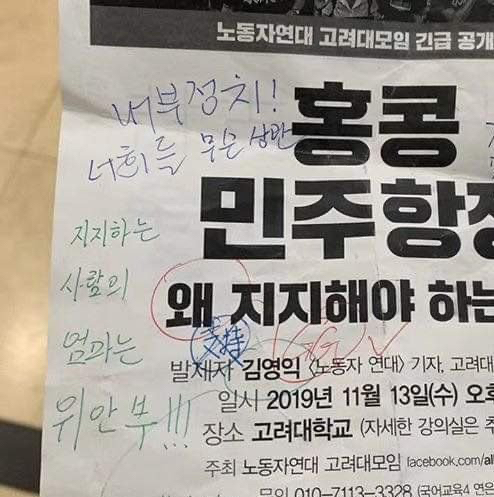 노동자연대 고려대모임 긴급 공개
버부정치!
너희들 무슨 상관
홍콩
민주항쟁
지지하는
사람의
엄마는
위안부!!!
왜 지지해야 하는
支持
발제자 김영익 〈노동자 연대〉 기자, 고려대
일시 2019년 11월 13일(수) 오후
장소 고려대학교 (자세한 강의실은 추
주최 노동자연대 고려대모임 facebook.com/al
문의 010-7113-3328 (국어교육4 연은